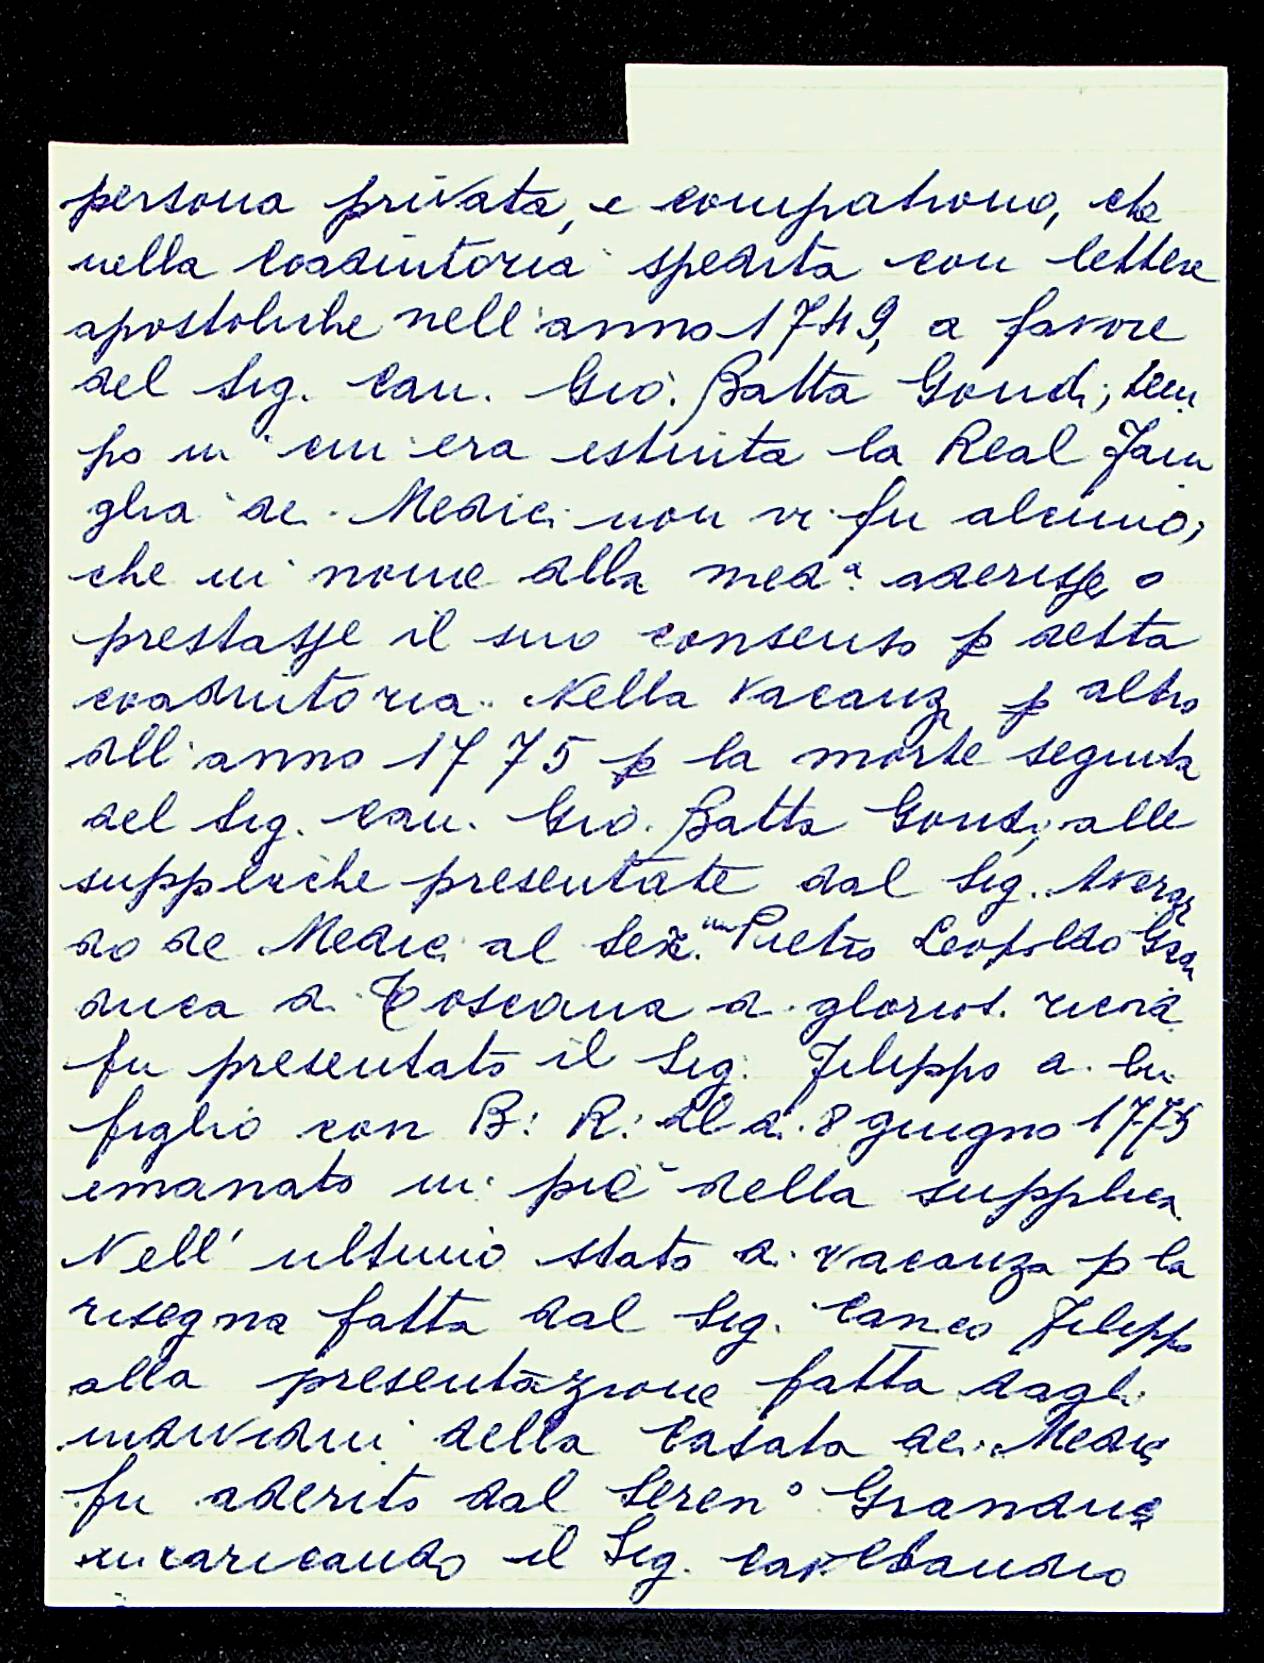 persona privata, e compatrono, che
nella Coadiutoria spedita con lettere
apostoliche nell'anno 1749, a favore
del Sig. Can. Gio. Batta Gondi; tem
po in cui era estinta la Real Fami
glia de Medici non vi fu alcuno,
che in nome della med.ª aderisse o
prestasse il suo consenso p detta
coadiutoria. Nella Vacanza p altro
dell'anno 1775 p la morte seguita
del Sig. Can. Gio. Batta Gondi, alle
suppliche presentate dal Sig. Averar
do de Medici al Ser.mo Pietro Leopoldo Gran
duca di Toscana di glorios.
fu presentato il Sig. Filippo di lui
figlio con B: R: del dì 8 giugno 1775
emanato in piè della supplica.
Nell' ultimo stato di vacanza p la
risegna fatta dal Sig. Can.co Filippo
alla presentazione fatta dagli
individui della Casata de Medici
fu aderito dal Seren.º Granduca
incaricando il Sig.